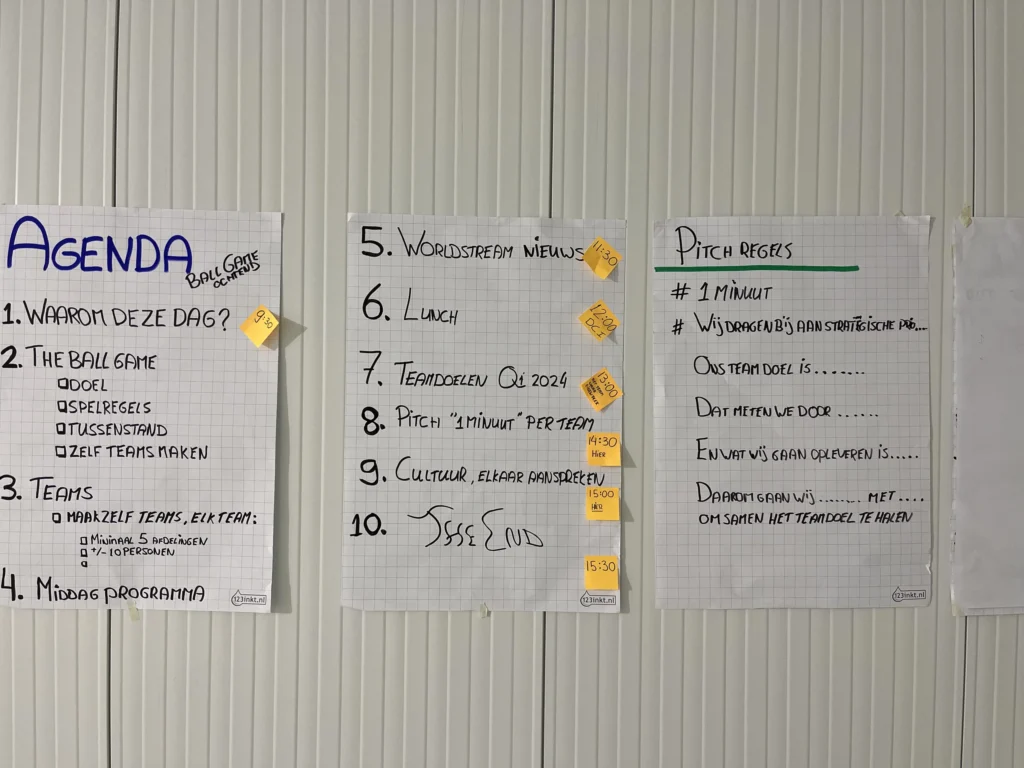 AGENDA
BALL GAME
OCHTEND
1. WAAROM DEZE DAG?
9:30
2. THE BALL GAME
DOEL
SPELREGELS
TUSSENSTAND
ZELF TEAMS MAKEN
3. TEAMS
MAAK ZELF TEAMS, ELK TEAM:
MINIMAAL 5 AFDELINGEN
+/- 10 PERSONEN
4. MIDDAG PROGRAMMA
123inkt.nl
5. WORLDSTREAM NIEUWS
11:30
6. LUNCH
12:00
7. TEAMDOELEN Q1 2024
13:00
8. PITCH "1 MINUUT" PER TEAM
14:30
HIER
9. CULTUUR, ELKAAR AANSPREKEN
15:00
10. END
15:30
123inkt.nl
PITCH REGELS
# 1 MINUUT
# WIJ DRAGEN BIJ AAN STRATEGISCHE
ONS TEAM DOEL IS.......
DAT METEN WE DOOR ......
EN WAT WIJ GAAN OPLEVEREN IS.....
DAAROM GAAN WIJ ........ MET ....
OM SAMEN HET TEAMDOEL TE HALEN
123inkt.nl